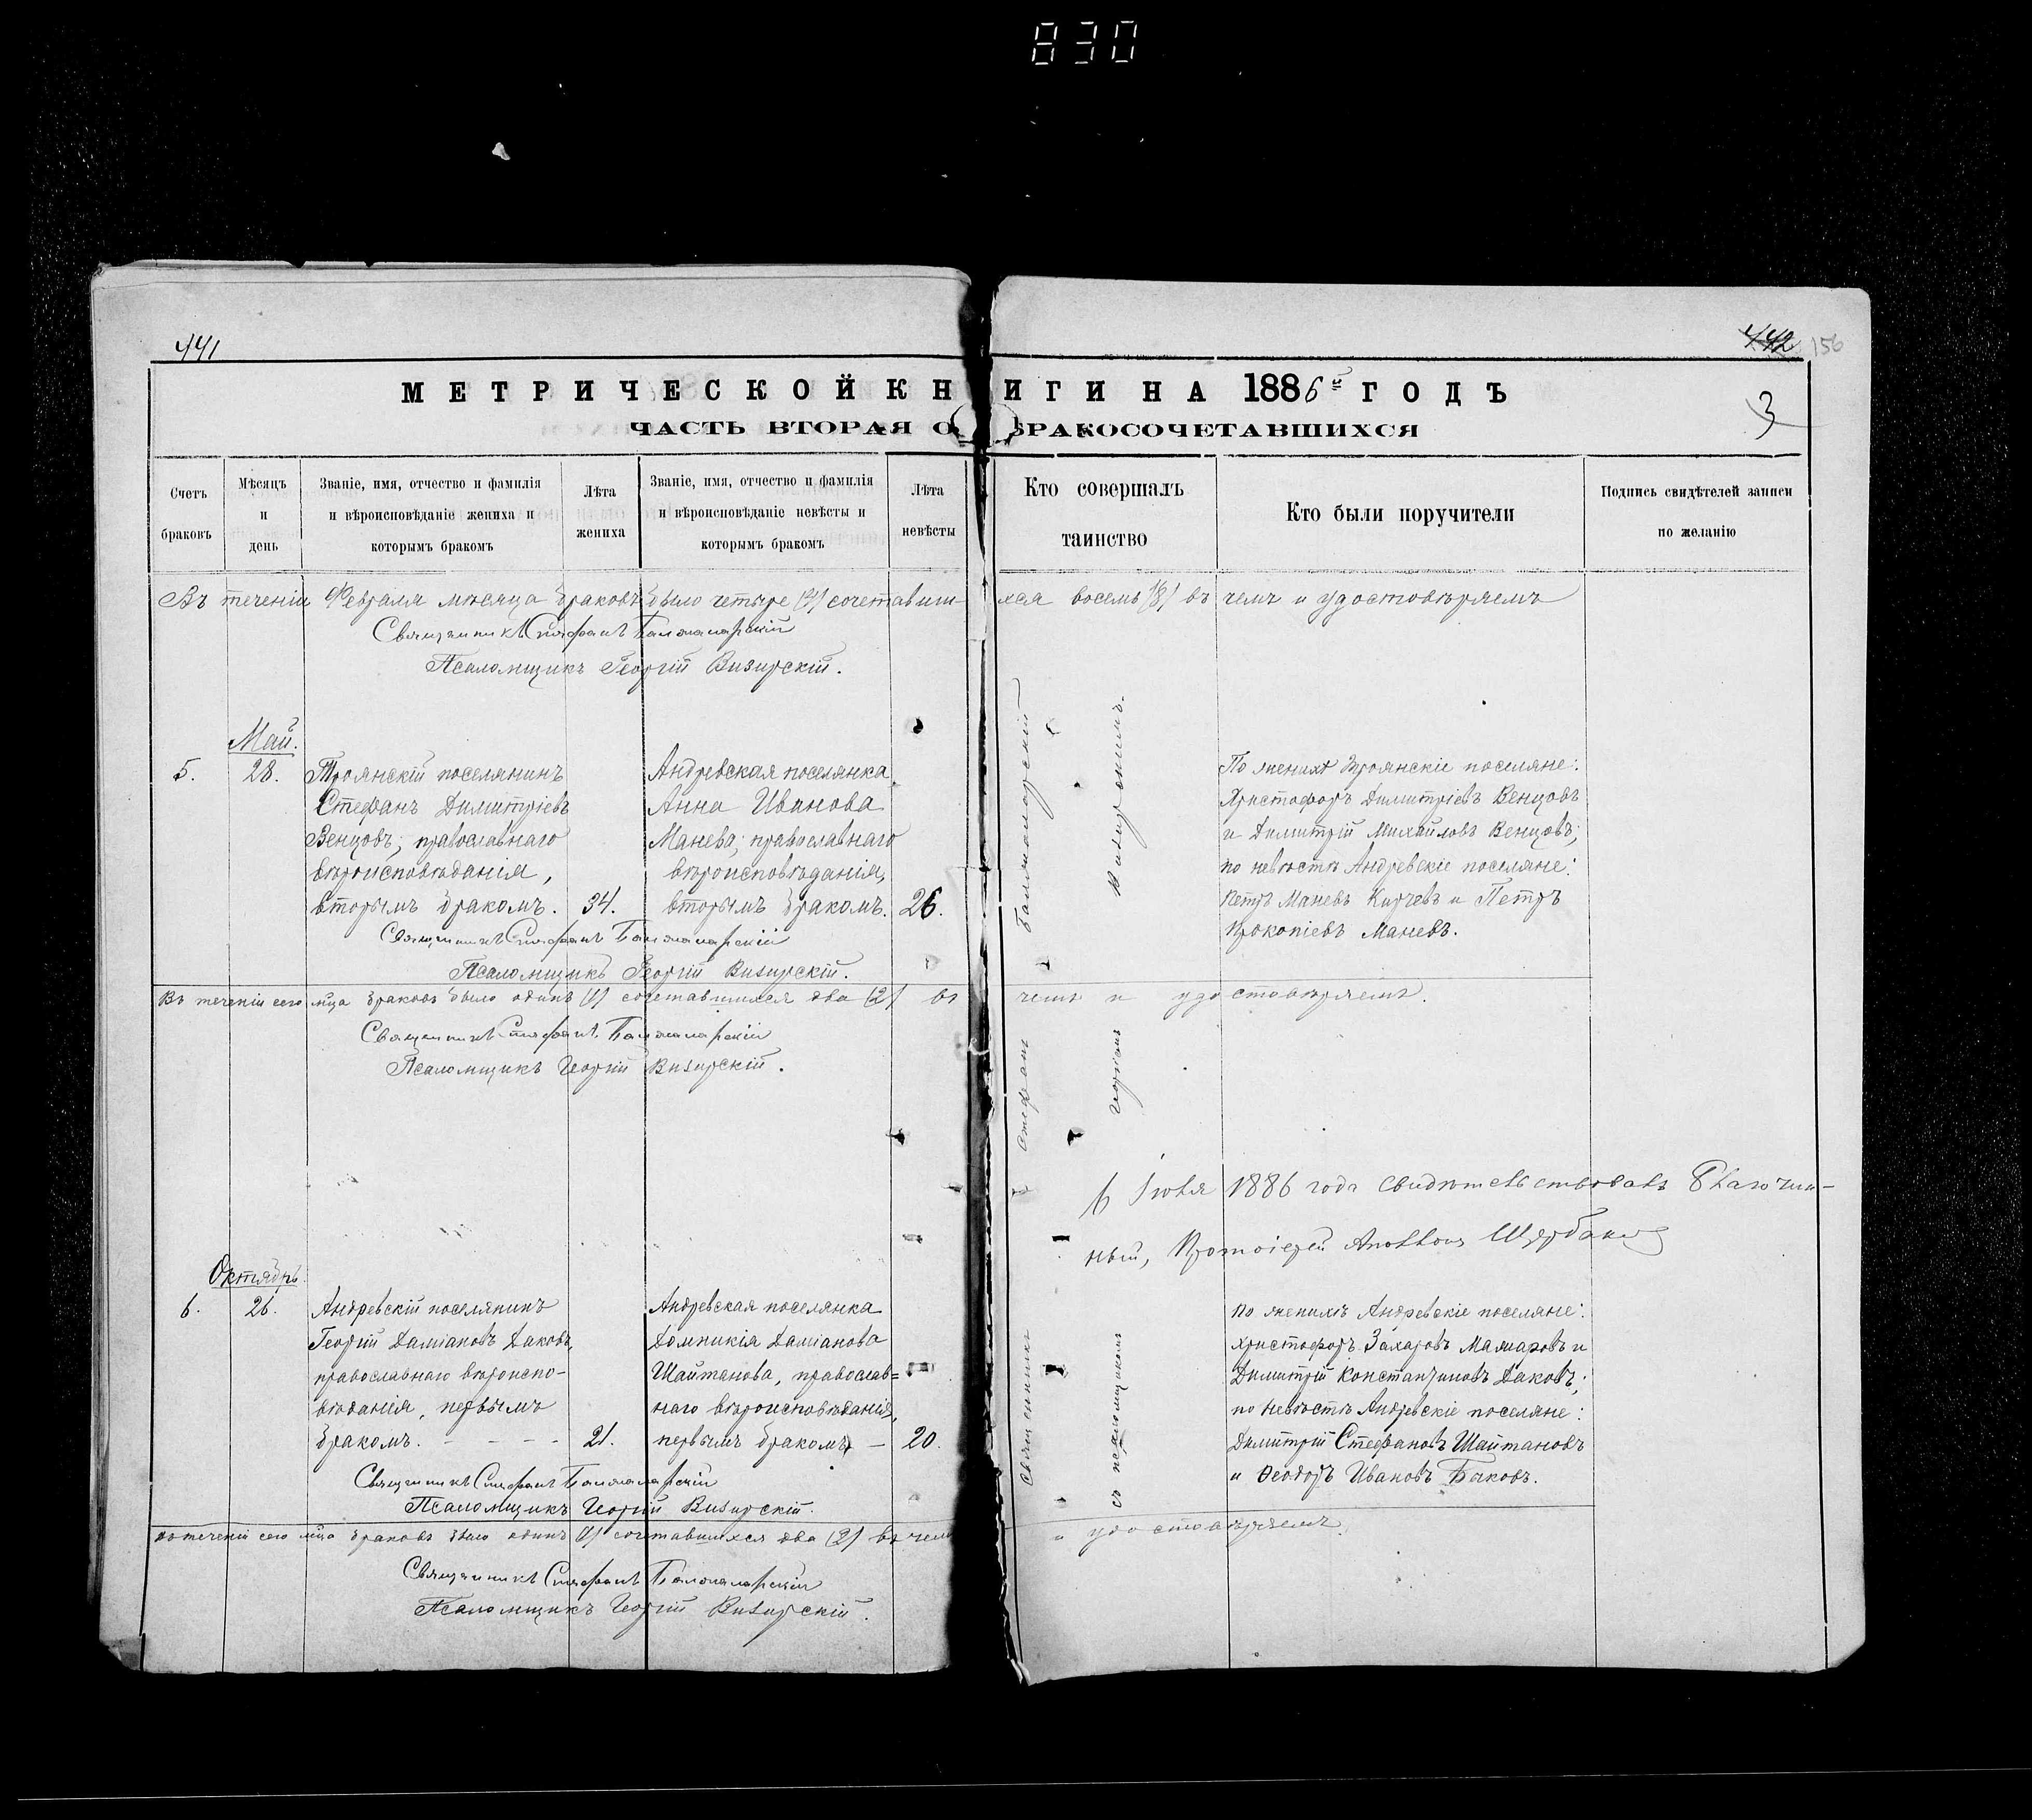 830
441
442 156
МЕТРИЧЕСКОЙ КНИГИ НА 1886й ГОДЪ
3
ЧАСТЬ ВТОРАЯ О БРАКОСОЧЕТАВШИХСЯ
Счетъ браковъ
Мѣсяцъ и день
Званіе, имя, отчество и фамилія и вѣроисповѣданіе жениха и которымъ бракомъ
Лѣта жениха
Званіе, имя, отчество и фамилія и вѣроисповѣданіе невѣсты и которымъ бракомъ
Лѣта невѣсты
Кто совершалъ таинство
Кто были поручители
Подпись свидѣтелей записи по желанію
Въ теченіи Февраля мѣсяца браковъ было четыре (4) сочетавшихся восемь (8) въ чемъ и удостовѣряемъ
Священникъ Стефанъ
Псаломщикъ Георгій Визирскій.
Май.
5. 28.
Троянскій поселянинъ
Стефанъ Димитріевъ
Венцовъ, православнаго
вѣроисповѣданія,
вторымъ бракомъ. 34.
Андревская поселянка
Анна Иванова
Манева, православнаго
вѣроисповѣданія,
вторымъ бракомъ. 26.
По женихѣ Троянскіе поселяне:
Христофоръ Димитріевъ Венцовъ
и Димитрій Михайловъ Венцовъ;
по невѣстѣ Андревскіе поселяне:
Петръ Маневъ Кирчевъ и Петръ
Прокопіевъ Маневъ.
Священникъ Стефанъ
Псаломщикъ Георгій Визирскій.
Въ теченіи сего мѣа браковъ было одинъ (1) сочетавшихся два (2) въ чемъ и удостовѣряемъ.
Священникъ Стефанъ
Псаломщикъ Георгій Визирскій.
6 Іюня 1886 года свидѣтельствовалъ Благочин-
ный, Протоіерей Аполлонъ
Октябрь
6. 26.
Андревскій поселянинъ
Георгій Даміановъ Даковъ,
православнаго вѣроиспо-
вѣданія, первымъ
бракомъ. - - - - 21.
Андревская поселянка
Домникія Даміанова
Шайтанова, православ=
наго вѣроисповѣданія,
первымъ бракомъ - 20.
По женихѣ Андревскіе поселяне:
Христофоръ Захаровъ Мамаровъ и
Димитрій Константиновъ Даковъ;
по невѣстѣ Андревскіе поселяне:
Димитрій Стефановъ Шайтановъ
и Ѳеодоръ Ивановъ Баковъ.
Священникъ Стефанъ
Псаломщикъ Георгій Визирскій.
Въ теченіи сего мѣа браковъ было одинъ (1) сочетавшихся два (2) въ чемъ и удостовѣряемъ.
Священникъ Стефанъ
Псаломщикъ Георгій Визирскій.
Священникъ Стефанъ
съ псаломщикомъ Георгіемъ Визирскимъ.